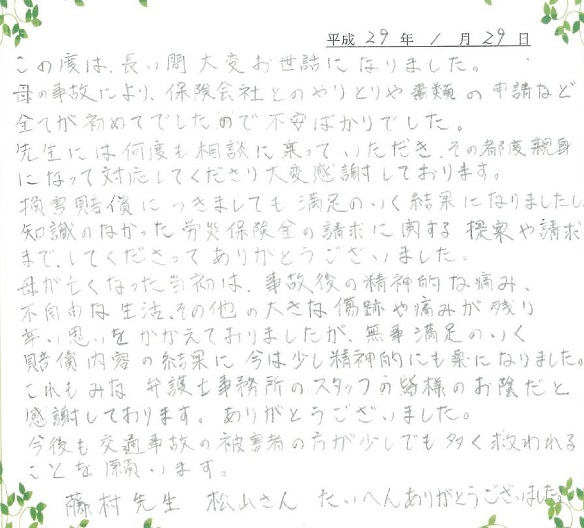 平成 29 年 1 月 29 日
この度は、長い間 大変お世話になりました。
母の事故により、保険会社とのやりとりや書類の申請など
全てが初めてでしたので不安ばかりでした。
先生には何度も相談に乗っていただき、その都度親身
になって対応してくださり大変感謝しております。
損害賠償につきましても満足のいく結果になりましたし、
知識のなかった労災保険金の請求に関する提案や請求
まで、してくださってありがとうございました。
母が亡くなった当初は、事故後の精神的な痛み、
不自由な生活、その他の大きな傷跡や痛みが残り
辛い思いをかかえておりましたが 無事満足のいく
賠償内容の結果に 今は少し精神的にも楽になりました。
これもみな 弁護士事務所のスタッフの皆様のお陰だと
感謝しております。ありがとうございました。
今後も交通事故の被害者の方が少しでも多く救われる
ことを願います。
藤村先生 松山さん たいへんありがとうございました